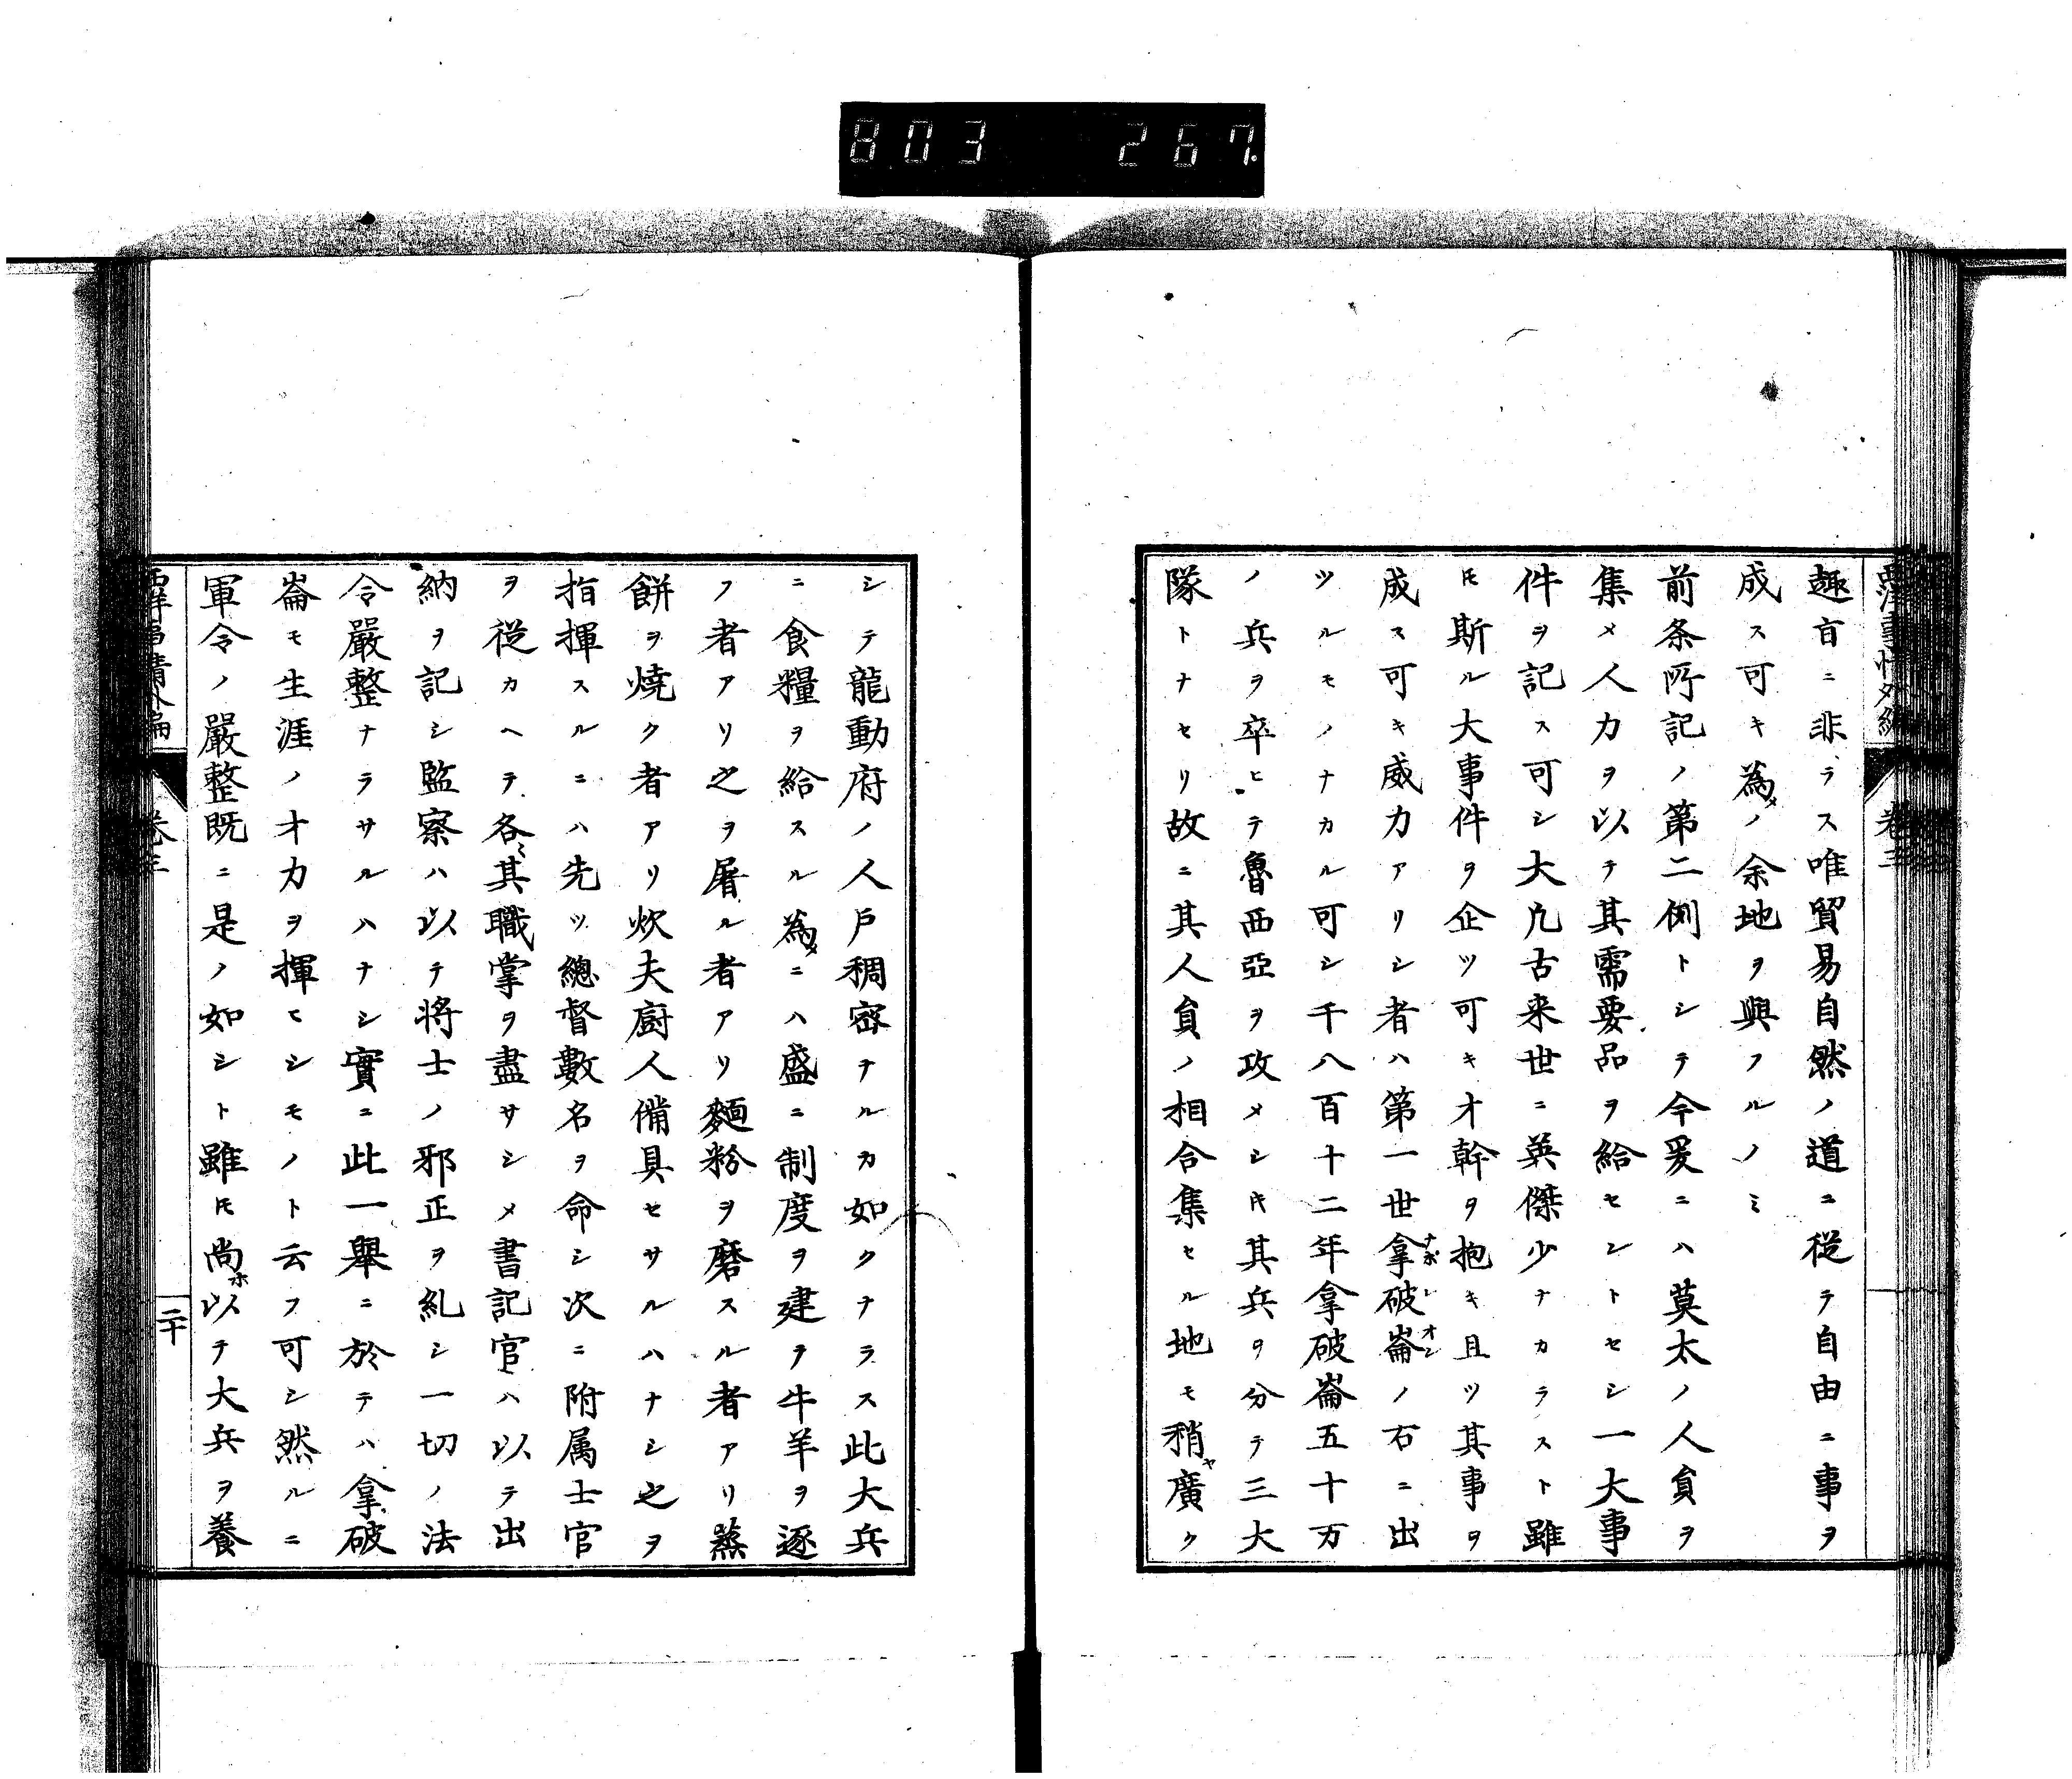 803 267
西洋事情外編 卷三
趣旨ニ非ラス唯貿易自然ノ道ニ從テ自由ニ事ヲ
成ス可キ為メノ余地ヲ興フルノミ
前条所記ノ第二例トシテ今爰ニハ莫太ノ人員ヲ
集メ人力ヲ以テ其需要品ヲ給セシトセシ一大事
件ヲ記ス可シ大凢古来世ニ英傑少ナカラスト雖
𪜈斯ル大事件ヲ企ツ可キオ幹ヲ抱キ且ツ其事ヲ
成ス可キ威力アリシ者ハ第一世拿破崙ノ右ニ出
ツルモノナカル可シ千八百十二年拿破崙五十万
ノ兵ヲ卒ヒテ魯西亞ヲ攻メシキ其兵ヲ分テ三大
隊トナセリ故ニ其人員ノ相合集セル地モ稍ヤ廣ク
シテ龍動府ノ人戸稠密ナルカ如クナラス此大兵
ニ食糧ヲ給スル為メニハ盛ニ制度ヲ建テ牛羊ヲ逐
フ者アリ之ヲ屠ル者アリ麺粉ヲ磨スル者アリ蒸
餅ヲ焼ク者アリ炊夫厨人備具セサルハナシ之ヲ
指揮スルニハ先ツ總督數名ヲ命シ次ニ附属士官
ヲ從カヘテ各〻其職掌ヲ盡サシメ書記官ハ以テ出
納ヲ記シ監察ハ以テ将士ノ邪正ヲ糺シ一切ノ法
令嚴整ナラサルハナシ實ニ此一舉ニ於テハ拿破
崙モ生涯ノオ力ヲ揮ヒシモノト云フ可シ然ルニ
軍令ノ嚴整既ニ是ノ如シト雖𪜈尚ホ以テ大兵ヲ養
西洋事情外編 卷三 二十